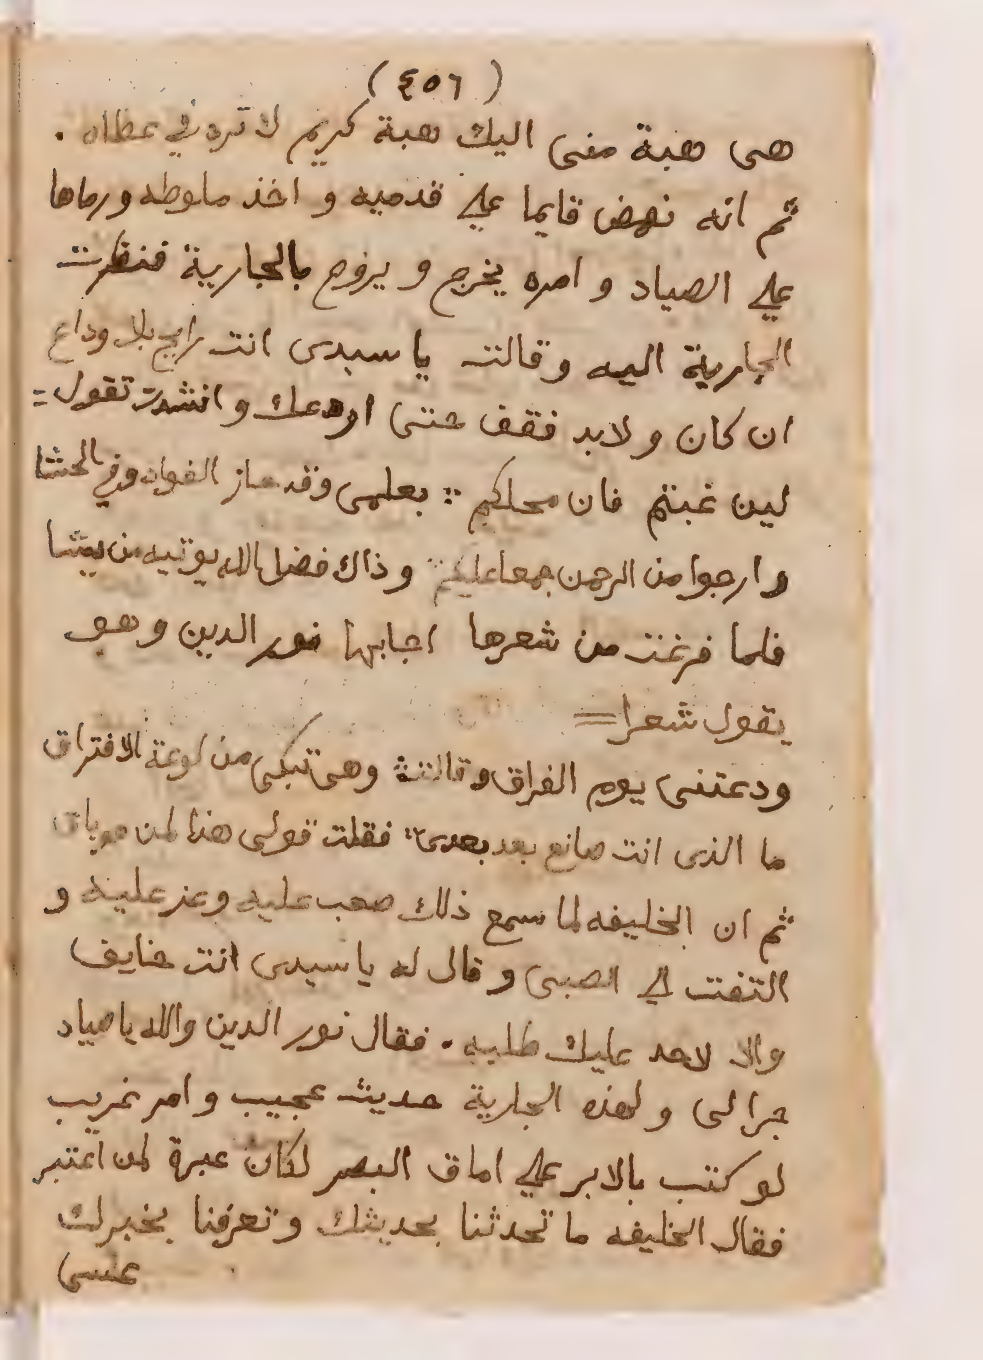 (٤٥٦)
هى هبة منى اليك هبة كريم لا ترد في عطاه .
ثم انه نهض قايما علي قدميه و اخذ ملوطه ورماها
علي الصياد و امره يخرج و يروح بالجارية فنظرت
الجارية اليه وقالت يا سيدى انت رايح بلا وداع
ان كان و لابد فقف حتى اودعك و انشدت تقول =
لين غبتم فان محلكم : بعلمى وقد حاز الفواد وفي الحشا
و ارجوا من الرحمن جمعا عليكم وذاك فضل الله يوتيه من يشا
فلما فرغت من شعرها اجابها نور الدين وهو
يقول شعرا =
ودعتنى يوم الفراق وقالت وهى تبكى من لوعة الافتراق
ما الذى انت صانع بعد بعدى : فقلت قولى هذا لمن هو باق
ثم ان الخليفه لما سمع ذلك صعب عليه وعز عليه و
التفت الي الصبى و قال له يا سيدى انت خايف
والا لاحد عليك طلبه . فقال نور الدين والله يا صياد
جرالى و لهذه الجارية حديث عجيب و امر غريب
لو كتب بالابر علي اماق البصر لكان عبرة لمن اعتبر
فقال الخليفه ما تحدثنا بحديثك و تعرفنا بخبرك
عسى